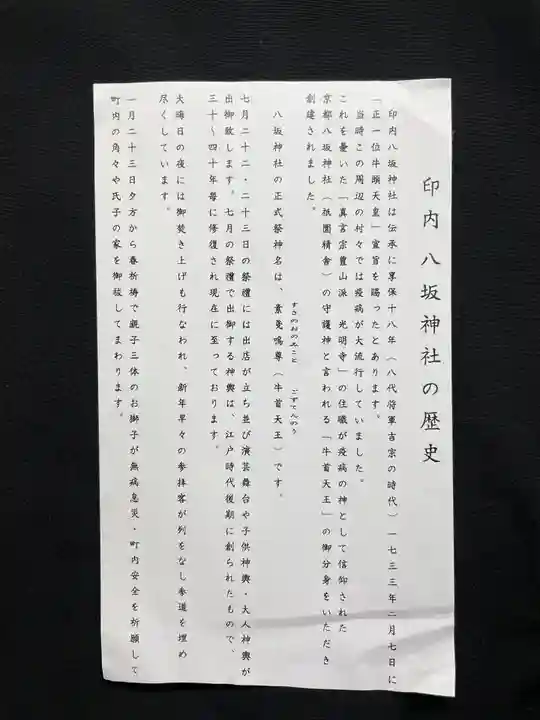 印内 八坂神社の歴史
印内八坂神社は伝承に享保十八年（八代将軍吉宗の時代）一七三三年二月七日に
「正一位牛頭天皇」宣旨を賜ったとあります。
当時この周辺の村々では疫病が大流行していました。
これを憂いた「真言宗豊山派 光明寺」の住職が疫病の神として信仰された
京都八坂神社（祇園精舎）の守護神と言われる「牛首天王」の御分身をいただき
創建されました。
すさのおのみこと ごずてんのう
八坂神社の正式祭神名は、素戔嗚尊（牛首天王）です。
七月二十二・二十三日の祭禮には出店が立ち並び演芸舞台や子供神輿・大人神輿が
出御致します。七月の祭禮で出御する神輿は、江戸時代後期に創られたもので、
三十〜四十年毎に修復され現在に至っております。
大晦日の夜には御焚き上げも行なわれ、新年早々の参拝客が列をなし参道を埋め
尽くしています。
一月二十三日夕方から春祈祷で親子三体のお獅子が無病息災・町内安全を祈願して
町内の角々や氏子の家を御祓してまわります。